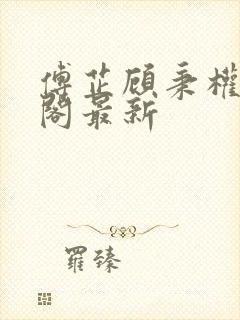 傅芷顾秉權
阁最新
羅臻